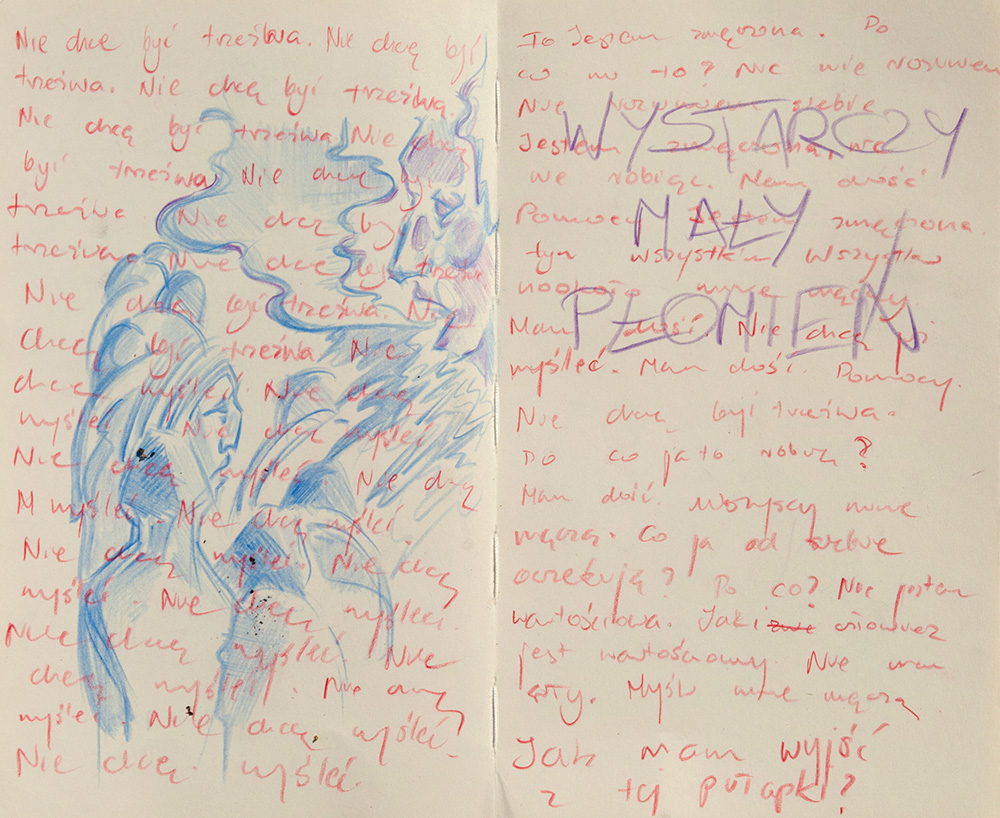 Nie chcę być trzeźwa. Nie chcę być
trzeźwa. Nie chcą być trzeźwą.
Nie chcę być trzeźwa. Nie chcę
być trzeźwa Nie chcę być
trzeźwa. Nie chcę być
trzeźwa. Nie chcę być trzeźwa
Nie chcę być trzeźwa. Nie
chcę być trzeźwa. Nie
chcę myśleć. Nie chcę
myśleć. Nie chcę myśleć.
Nie chcę myśleć. Nie chcę
M myśleć. Nie chcę myśleć.
Nie chcę myśleć. Nie chcę
myśleć. Nie chcę myśleć.
Nie chcę myśleć. Nie
chcę myśleć. Nie chcę
myśleć. Nie chcę myśleć.
Nie chcę myśleć.
To Jestem zmęczona. Po
co mi to? Nic nie rozumiem
Nie rozumiem siebie
Jestem zmęczona, nic
nie robiąc. Mam dość
Pomocy Jestem zmęczona
tym wszystkim Wszystko
naokoło mnie męczy
Mam dość Nie chcę
myśleć. Mam dość. Pomocy.
Nie chcę być trzeźwa.
Po co ja to robię?
Mam dość. Wszyscy mnie
męczą. Co ja od siebie
oczekuję? Po co? Nie jestem
wartościowa. Jaki człowiek
jest wartościowy Nie mam
siły. Myśli mnie męczą
Jak mam wyjść
z tej pułapki?
WYSTARCZY
MAŁY
PŁOMIEŃ